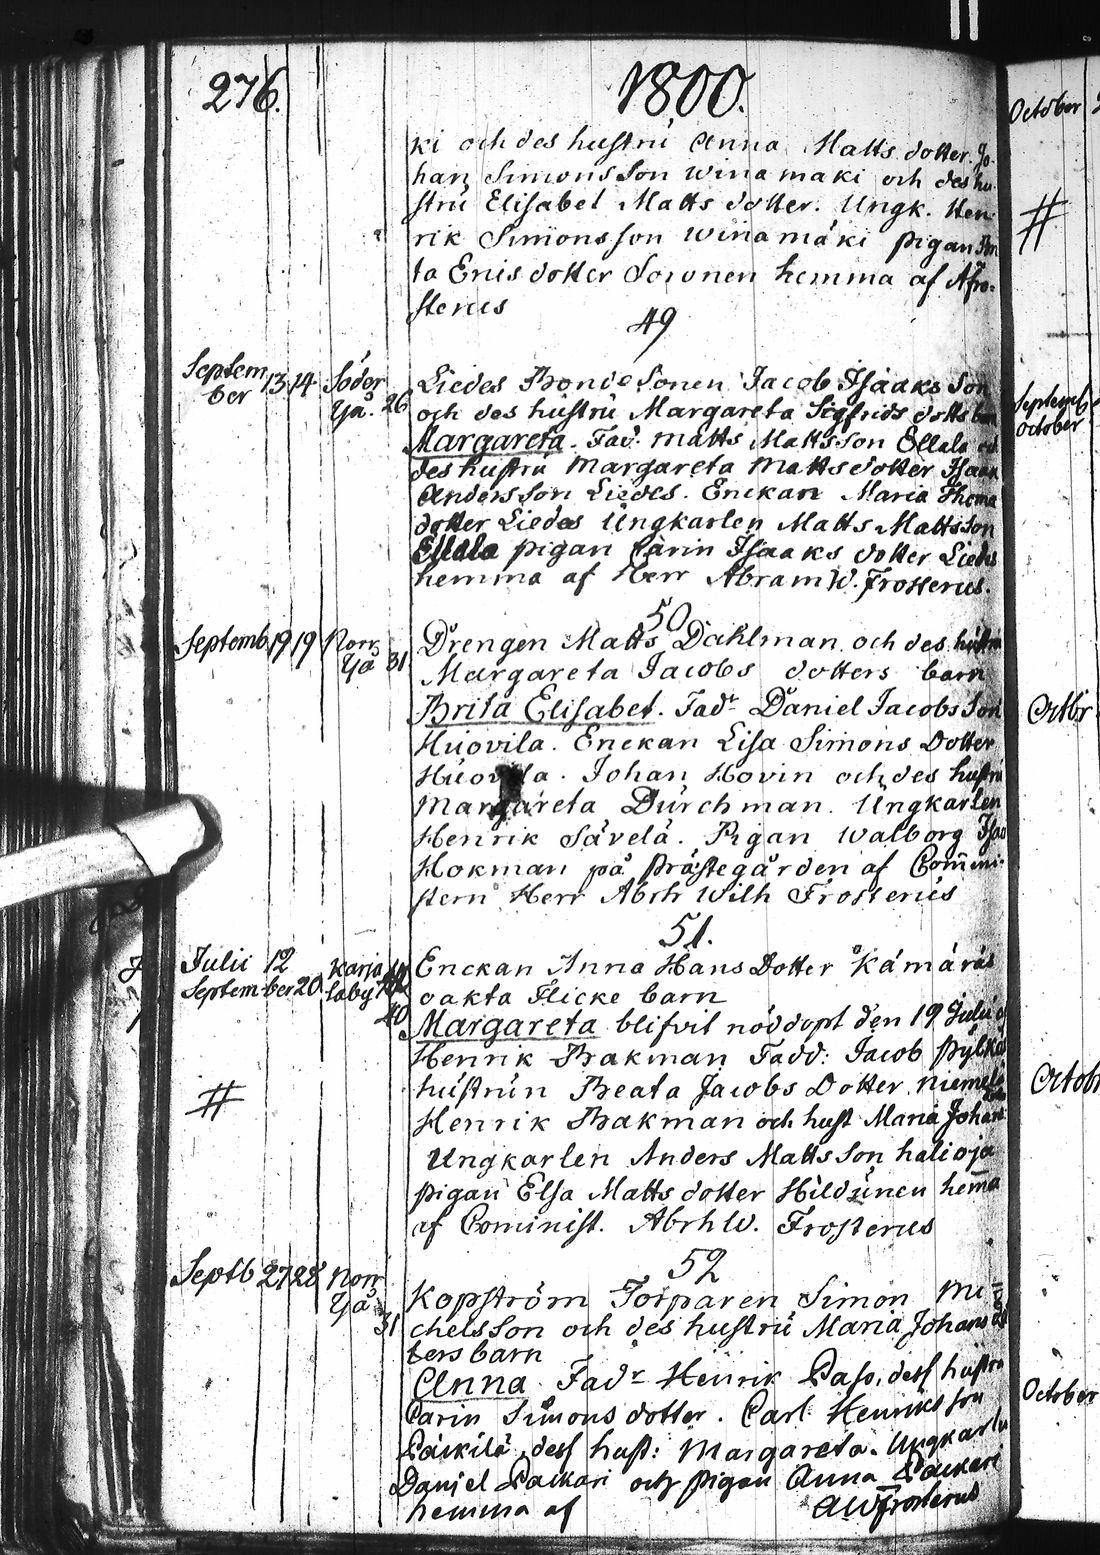 276.
1800.
ki och des hustru Anna Matts dotter. Jo-
han Simons Son Winamäki och des hu-
stru Elisabet Matts dotter. Ungk. Hen-
rik Simonsson Winamäki pigan
ta Enis dotter Sorvonen hemma af Fro-
sterus
49
Septem
ber 13 14 Söder
Yå. 26
Liedes Bonde Sonen Jacob Isaaks Son
och des hustru Margareta Sigfrids dotts barn
Margareta. Fad. Matts Mattsson Ellala och
des hustru Margareta Matts dotter Isaak
Andersson Liedes. Enckan Maria Thoma
dotter Liedes Ungkarlen Matts Mattsson
Ellala pigan Carin Isaaks dotter Liedes
hemma af Herr Abram W. Frosterus.
50
Septemb 19 19 Norr
Yå 31
Drengen Matts Dahlman och des hustru
Margareta Jacobs dotters barn
Brita Elisabet. Fadr Daniel Jacobs Son
Huovila. Enckan Lisa Simons Dotter
Huovila. Johan Hovin och des hustru
Margareta Durchman. Ungkarlen
Henrik Sävelä. Pigan Walborg
Hokman på Prästegården af Commi-
stern Herr Abrh Wilh Frosterus
51.
Julii 12 Karja
September 20 laby
40
Enckan Anna Hans Dotter Kämäräs
oäkta Flicke barn
Margareta blifvit nöddöpt den 19 Julii af
Henrik Brakman Fadd: Jacob Pylkäs
hustrun Beata Jacobs Dotter Niemelä
#
Henrik Brakman och hust Maria Johans
Ungkarlen Anders Matts Son halioja
pigan Elsa Matts dotter Hildunen hema
af Cominist. Abrh W. Frosterus
52
Septb 27 28 Norr
Yå 31
Kopström Torparen Simon Mi-
chels Son och des hustru Maria Johans
ters barn
Anna. Fadr Henrik Paso, dess hustru
Carin Simons dotter. Carl Henriks son
Päikilä, dess hust: Margareta. Ungkarln
Daniel Packari och Pigan Anna Packari
hemma af AWFrosterus
October
#
Septemb
October
Octbr
Octobr
October